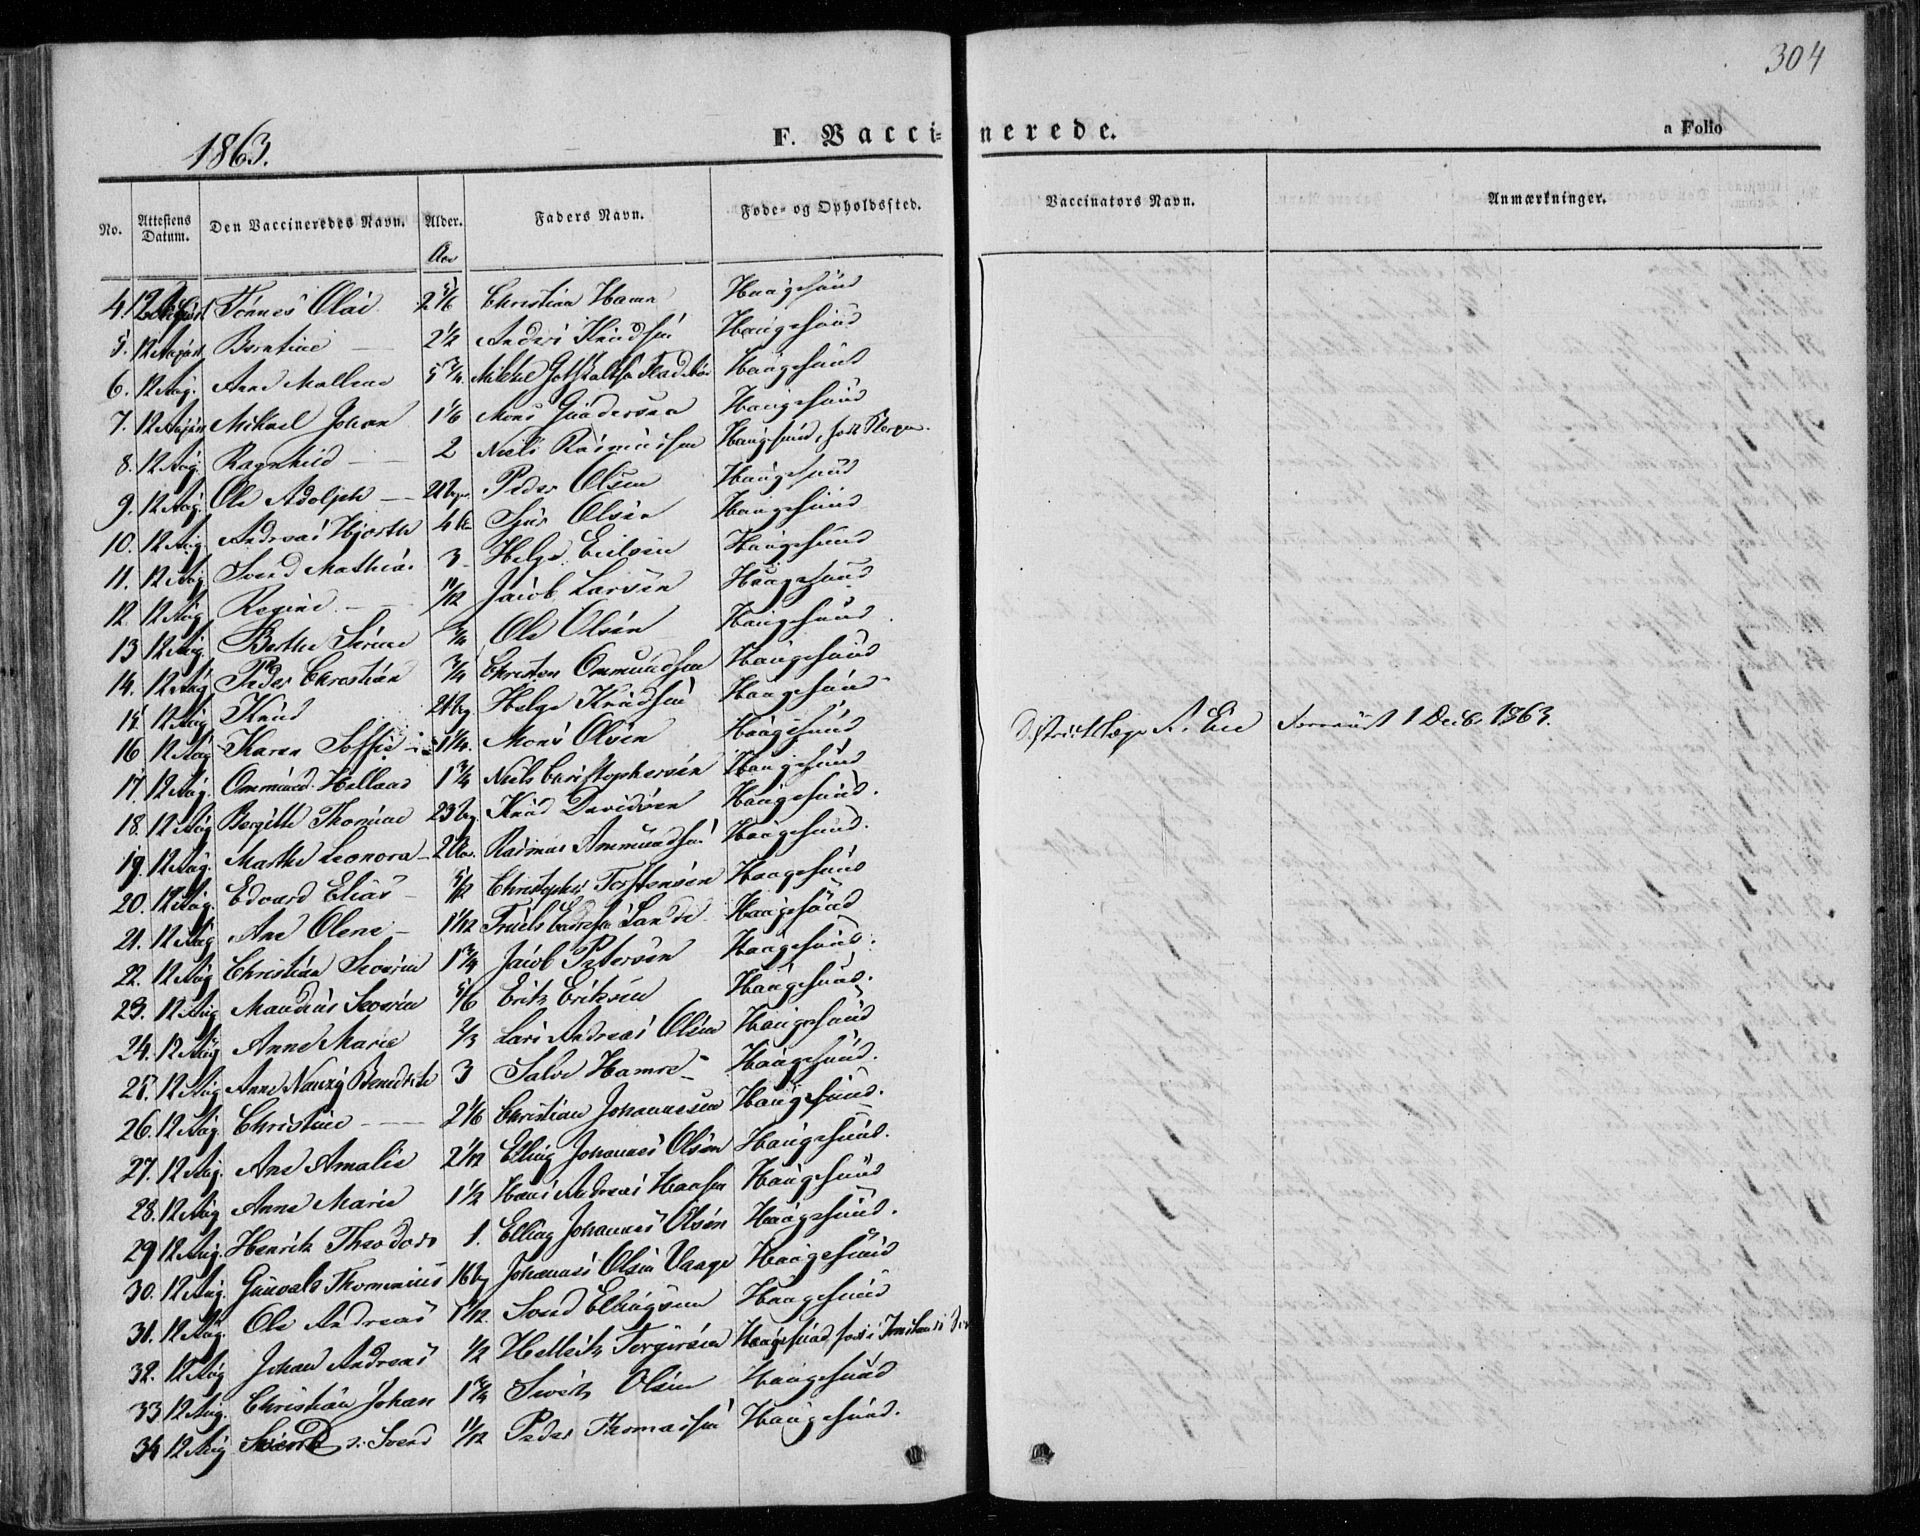 304
1863.
F. Vaccinerede.
a Folio
No. Attestens Datum. Den Vaccineredes Navn. Alder. Faders Navn. Føde- og Opholdssted. Vaccinators Navn. Anmærkninger.
Aar
4. 12 August Tønnes Olai 2 5/6 Christian Hamn Haugesund
5. 12 August Berntine — 2 1/2 Anders Knudsen Haugesund
6. 12 Aug. Ane Malene 5 3/4 Mikkel Haugesund
7. 12 August Mikael Johan 1 1/6 Mons Gundersen Haugesund
8. 12 Aug. Ragnhild — 2 Niels Rasmussen Haugesund, født
9. 12 Aug. Ole Adolph — Peder Olsen Haugesund
10. 12 Aug. Andreas Hjorth 4 Sjur Olsen Haugesund
11. 12 Aug Svend Mathias 3 Helge Haugesund
12. 12 Aug. Regine — 11/12 Jacob Larsen Haugesund
13 12 Aug. Berthe Serine 3/4 Ole Olsen Haugesund
14. 12 Aug Peder Christian 3/4 Christen Ommundsen Haugesund
15 12 Aug Knud Helge Knudsen Haugesund
16 12 Aug Karen Soffie 1 1/4 Mons Olsen Haugesund Districtslæge A. Eie 1 Decb. 1863.
17. 12 Aug. Ommund Helland 1 3/4 Niels Christophersen Haugesund
18. 12 Aug Bergitte Thomine 23 Knud Davidsen Haugesund.
19. 12 Aug. Marthe Leonora — 2 Aar. Rasmus Ammundsen Haugesund.
20. 12 Aug. Edvard Elias — 5/12 Christopher Torstensen Haugesund
21. 12 Aug Ane Olene — 1 1/12 Haugesund
22. 12 Aug Christian Severin 1 3/4 Jacob Petersen Haugesund.
23. 12 Aug Severin 5/6 Erik Eriksen Haugesund.
24. 12 Aug Anne Marie 2/3 Lars Andreas Olsen Haugesund
25. 12 Aug Anne Benedikte 3 Salve Hamre — Haugesund.
26. 12 Aug. Christine — 2 1/6 Christian Johannessen Haugesund.
27. 12 Aug. Ane Amalie 2 1/12 Elling Johannes Olsen Haugesund.
28. 12 Aug Anne Marie 1 1/2 Hans Andreas Hansen Haugesund
29 12 Aug. Henrik Theodor 1. Elling Johannes Olsen Haugesund.
30. 12 Aug. Gunvald Thomasius 16 Johannes Olsen Vaage Haugesund
31. 12 Aug. Ole Andreas 1 1/12 Svend Ellingsen Haugesund
32. 12 Aug Johan Andreas 1/2 Hellik Torgersen Haugesund, født i
33 12 Aug. Christian Johan 1 3/4 Olsen Haugesund
34 12 Aug Svend 11/12 Peder Thomassen Haugesund.